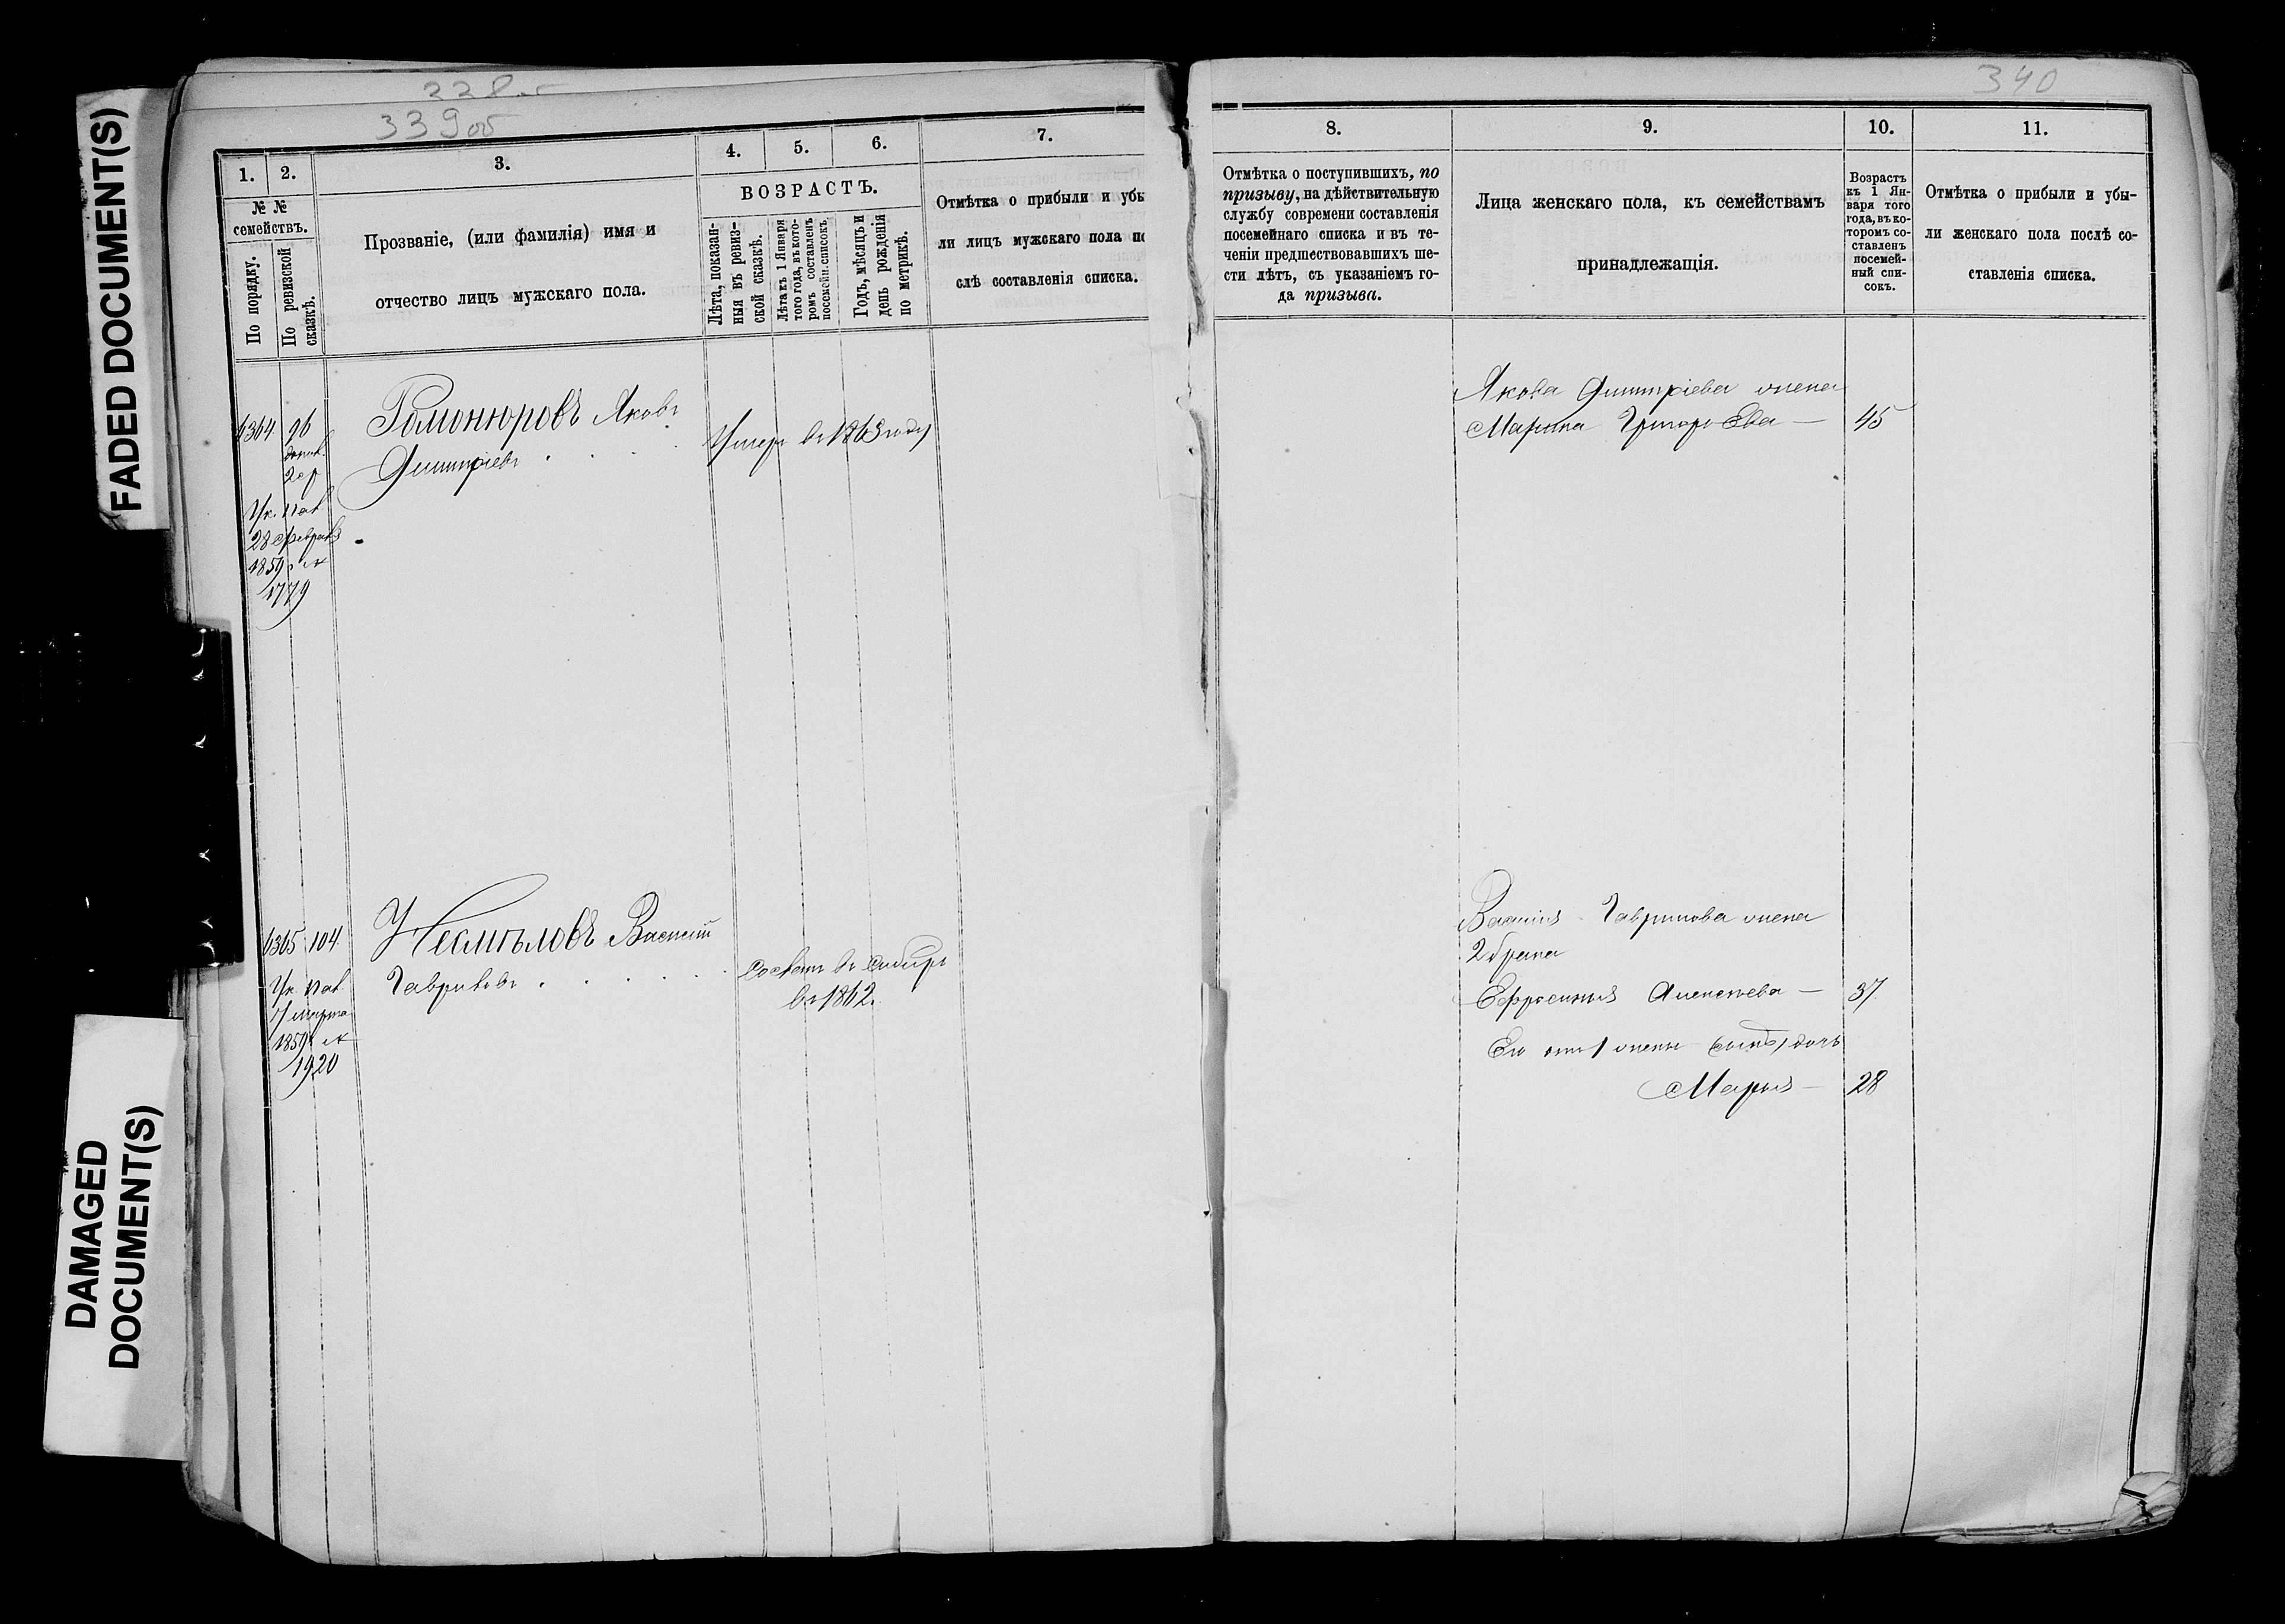 FADED DOCUMENT(S)
DAMAGED
DOCUMENT(S)
339об
1.
2.
3.
4.
5.
6.
7.
№ №
семействъ.
По порядку.
По ревизской
сказкѣ.
Прозваніе, (или фамилія) имя и
отчество лицъ мужскаго пола.
ВОЗРАСТЪ.
Лѣта, показан-
ныя въ ревиз-
ской сказкѣ.
Лѣта къ 1 Января
того года, въ кото-
ромъ составленъ
посемейн. списокъ
Годъ, мѣсяцъ и
день рожденія
по метрикѣ.
Отмѣтка о прибыли и убы
ли лицъ мужскаго пола по
слѣ составленія списка.
6364 96
2 ч
Ук. пал
28 февраля
1859 г. №
1779
Яковъ
Димитріевъ
Умеръ въ 1863 году
6365 104
Ук. пал
17 марта
1859 г. №
1920
Несмѣловъ Василій
Гавриловъ
Сосланъ въ Сибирь
въ 1862.
340
8.
9.
10.
11.
Отмѣтка о поступившихъ, по
призыву, на дѣйствительную
службу современи составленія
посемейнаго списка и въ те-
ченіи предшествовавшихъ ше-
сти лѣтъ, съ указаніемъ го-
да призыва.
Лица женскаго пола, къ семействамъ
принадлежащія.
Возрастъ
къ 1 Ян-
варя того
года, въ ко-
торомъ со-
ставленъ
посемей-
ный спи-
сокъ.
Отмѣтка о прибыли и убы-
ли женскаго пола послѣ со-
ставленія списка.
Якова Димитріева жена
Марина Григорьева — 45
Василія Гаврилова жена
2 брака
Ефросинья Алексѣева — 37
Его отъ 1 жены дочь
Марья — 28